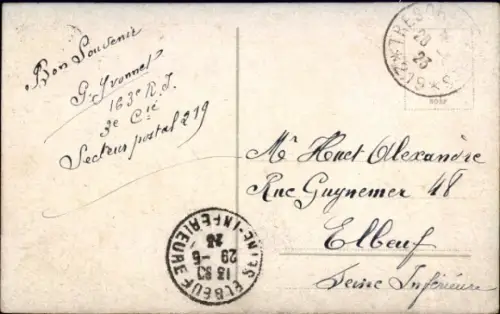 Bon Souvenir
G. Yvonnet
163e R.I.
3e Cie
Secteur postal 219
TRESOR
219
28
23
Mr Huet Alexandre
Rue Guynemer 48
Elbeuf
Seine Inférieure
ELBEUF SEINE-INFERIEURE
13
29-6
23